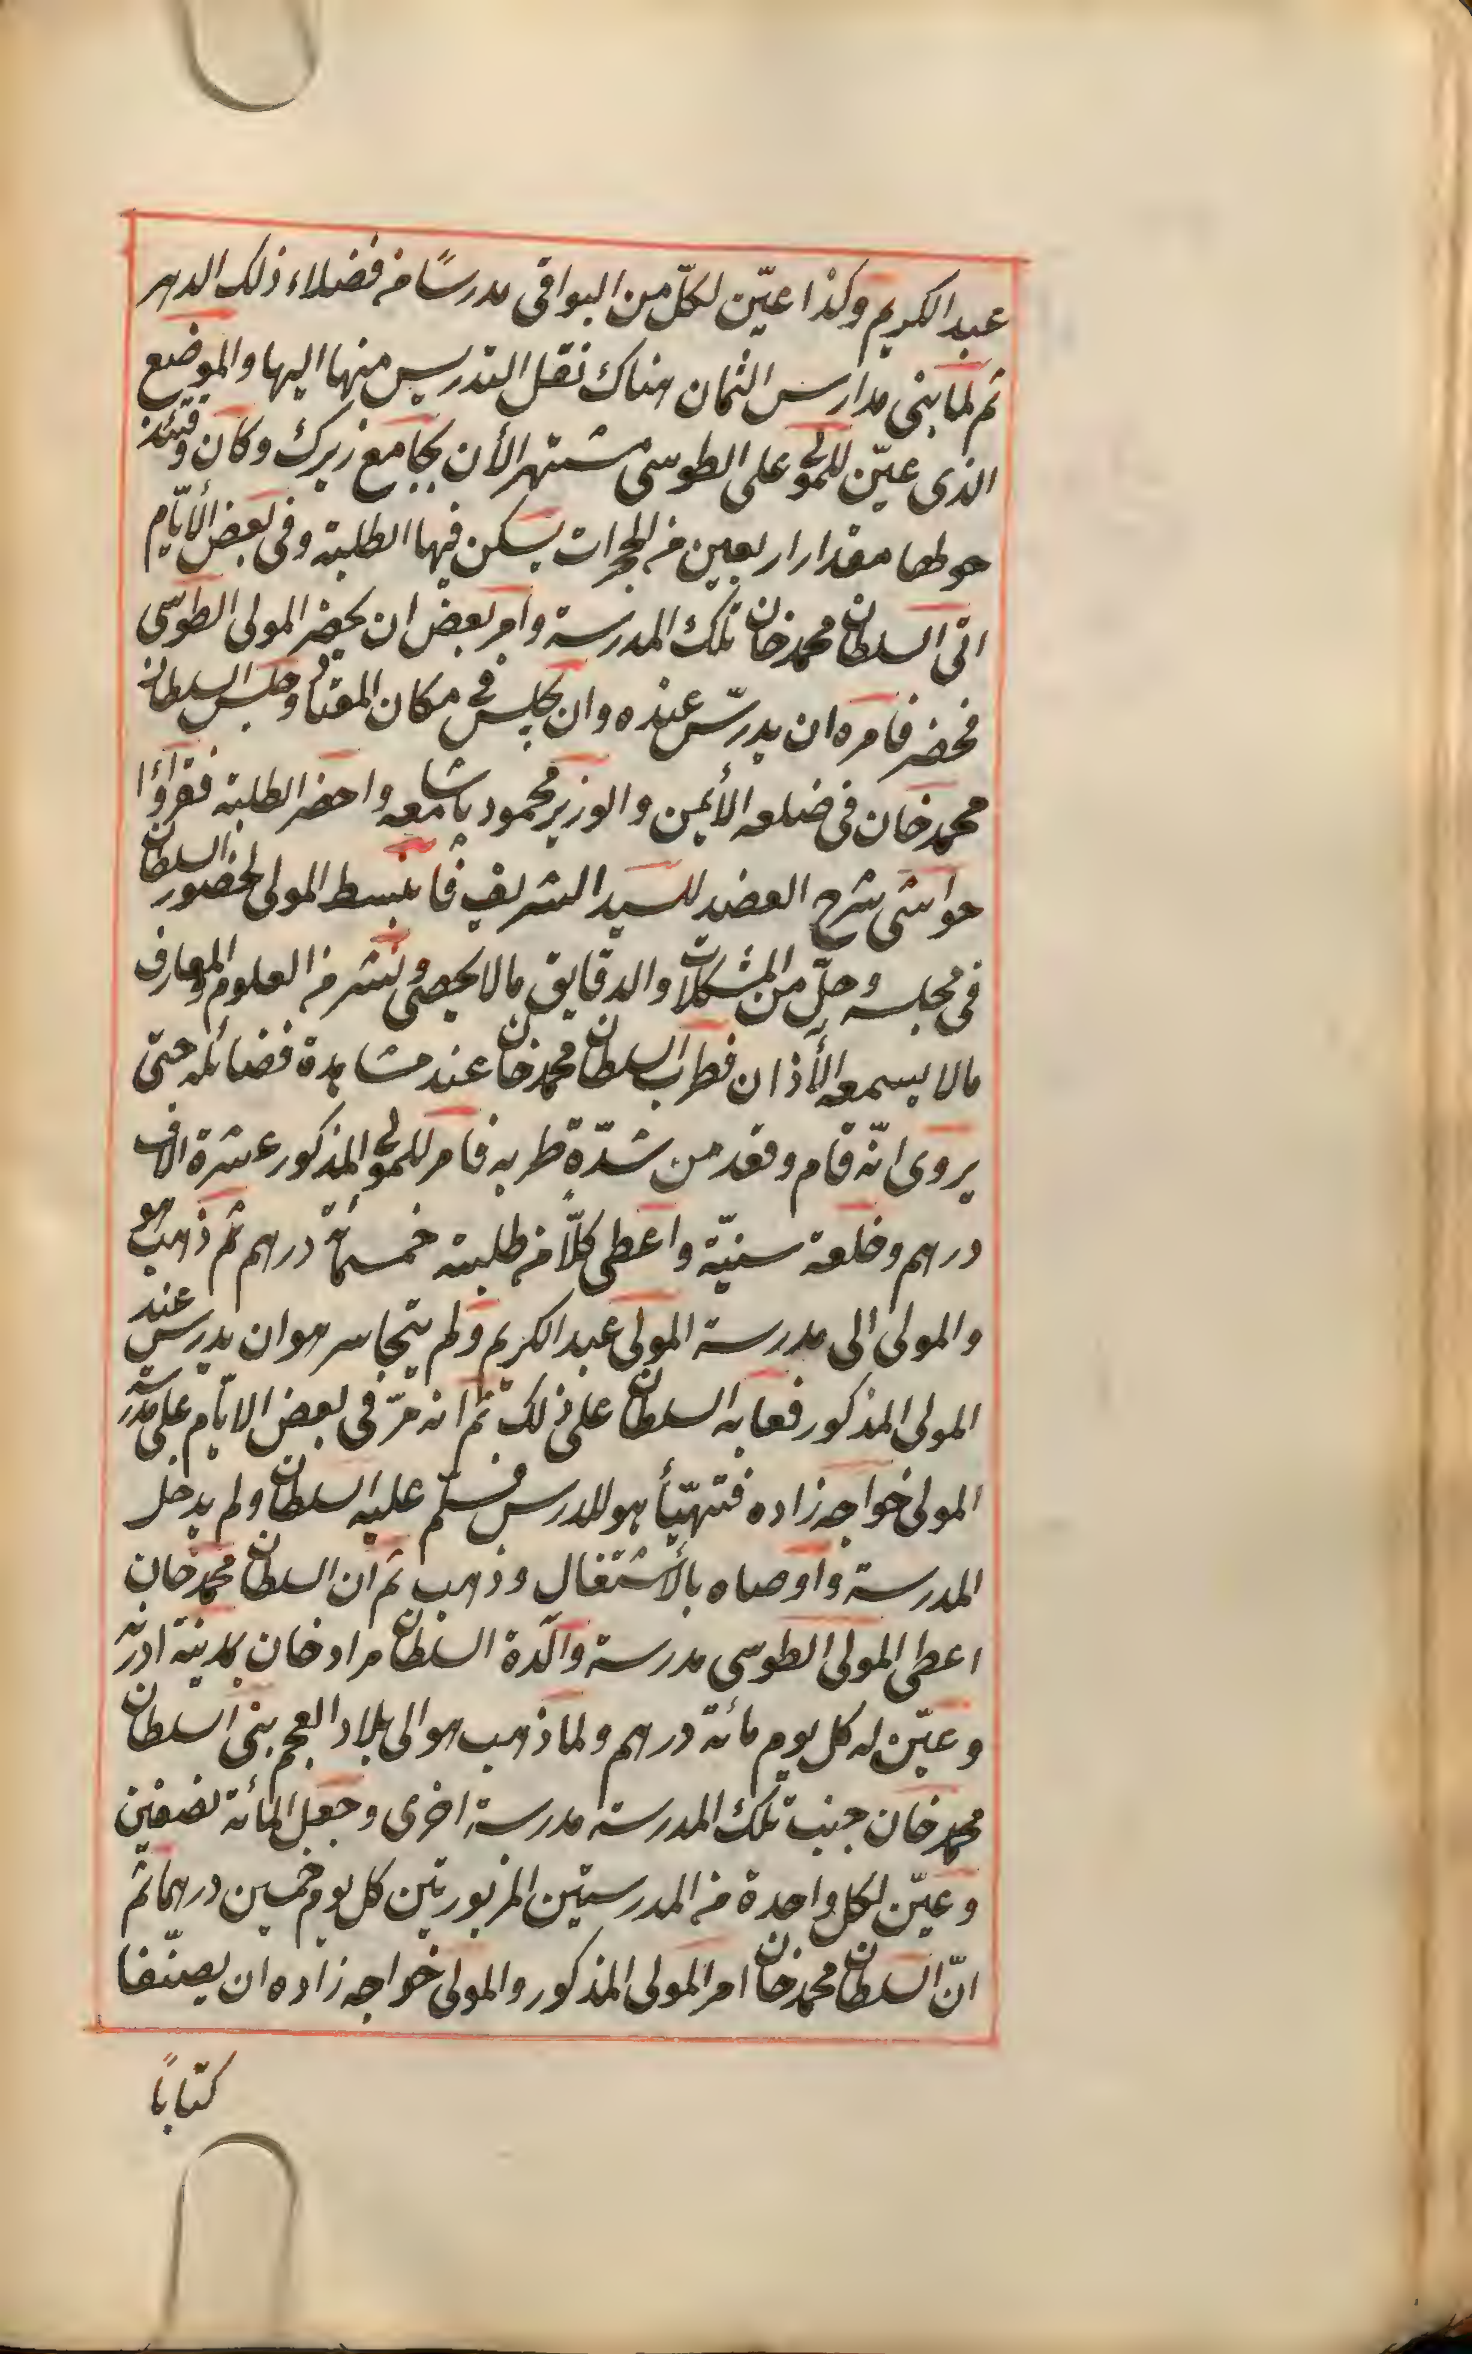 عبد الكريم وكذا عيّن لكلّ من البواقى مدرسًا من فضلاء ذلك الدهر
ثم لما بنى مدارس الثمان هناك نقل التدريس منها اليها والموضع
الذى عيّن للمولى على الطوسى مشتهر الأن بجامع زيرك وكان وقتئذ
حولها مقدار اربعين من الحجرات يسكن فيها الطلبة وفى بعض الأيّام
اتى السلطان محمد خان تلك المدرسة وامر بعض ان يحضر المولى الطوسى
فحضر فامره ان يدرّس عنده وان يجلس فى مكان المعتاد وجلس السلطان
محمد خان فى ضلعه الأيمن والوزير محمود باشا معه واحضر الطلبة فقراؤا
حواشى شرح العضد للسيد الشريف فأنبسط المولى لحضور السلطان
فى مجلسه وحلّ من المشكلات والدقايق مالا يحصى ونشر من العلوم والمعارف
مالا يسمعه الأذان فطرب السلطان محمد خان عند مشاهدة فضائله حتى
يروى انّه قام وقعد من شدّة طربه فامر للمولى المذكور عشرة الاف
درهم وخلعة سنيّة واعطى كلّا من طلبته خمسمائة درهم ثم ذهب هو
والمولى الى مدرسة المولى عبد الكريم ولم يتجاسر هو ان يدرس عند
المولى المذكور فعابه السلطان على ذلك ثم انه مرّ فى بعض الايّام على مدرسة
المولى خواجه زاده فتهيّأ هو للدرس فسلّم عليه السلطان ولم يدخل
المدرسة واوصاه بالأشتغال وذهب ثم ان السلطان محمد خان
اعطى المولى الطوسى مدرسة والدة السلطان مراد خان بمدينة ادرنه
وعيّن له كل يوم مائة درهم ولما ذهب هو الى بلاد العجم بنى السلطان
محمد خان جنب تلك المدرسة مدرسة اخرى وجعل المائة نصفين
وعيّن لكل واحدة من المدرستين المزبورتين كل يوم خمسين درهما ثم
انّ السلطان محمد خان امر المولى المذكور والمولى خواجه زاده ان يصنّفا
كتابًا